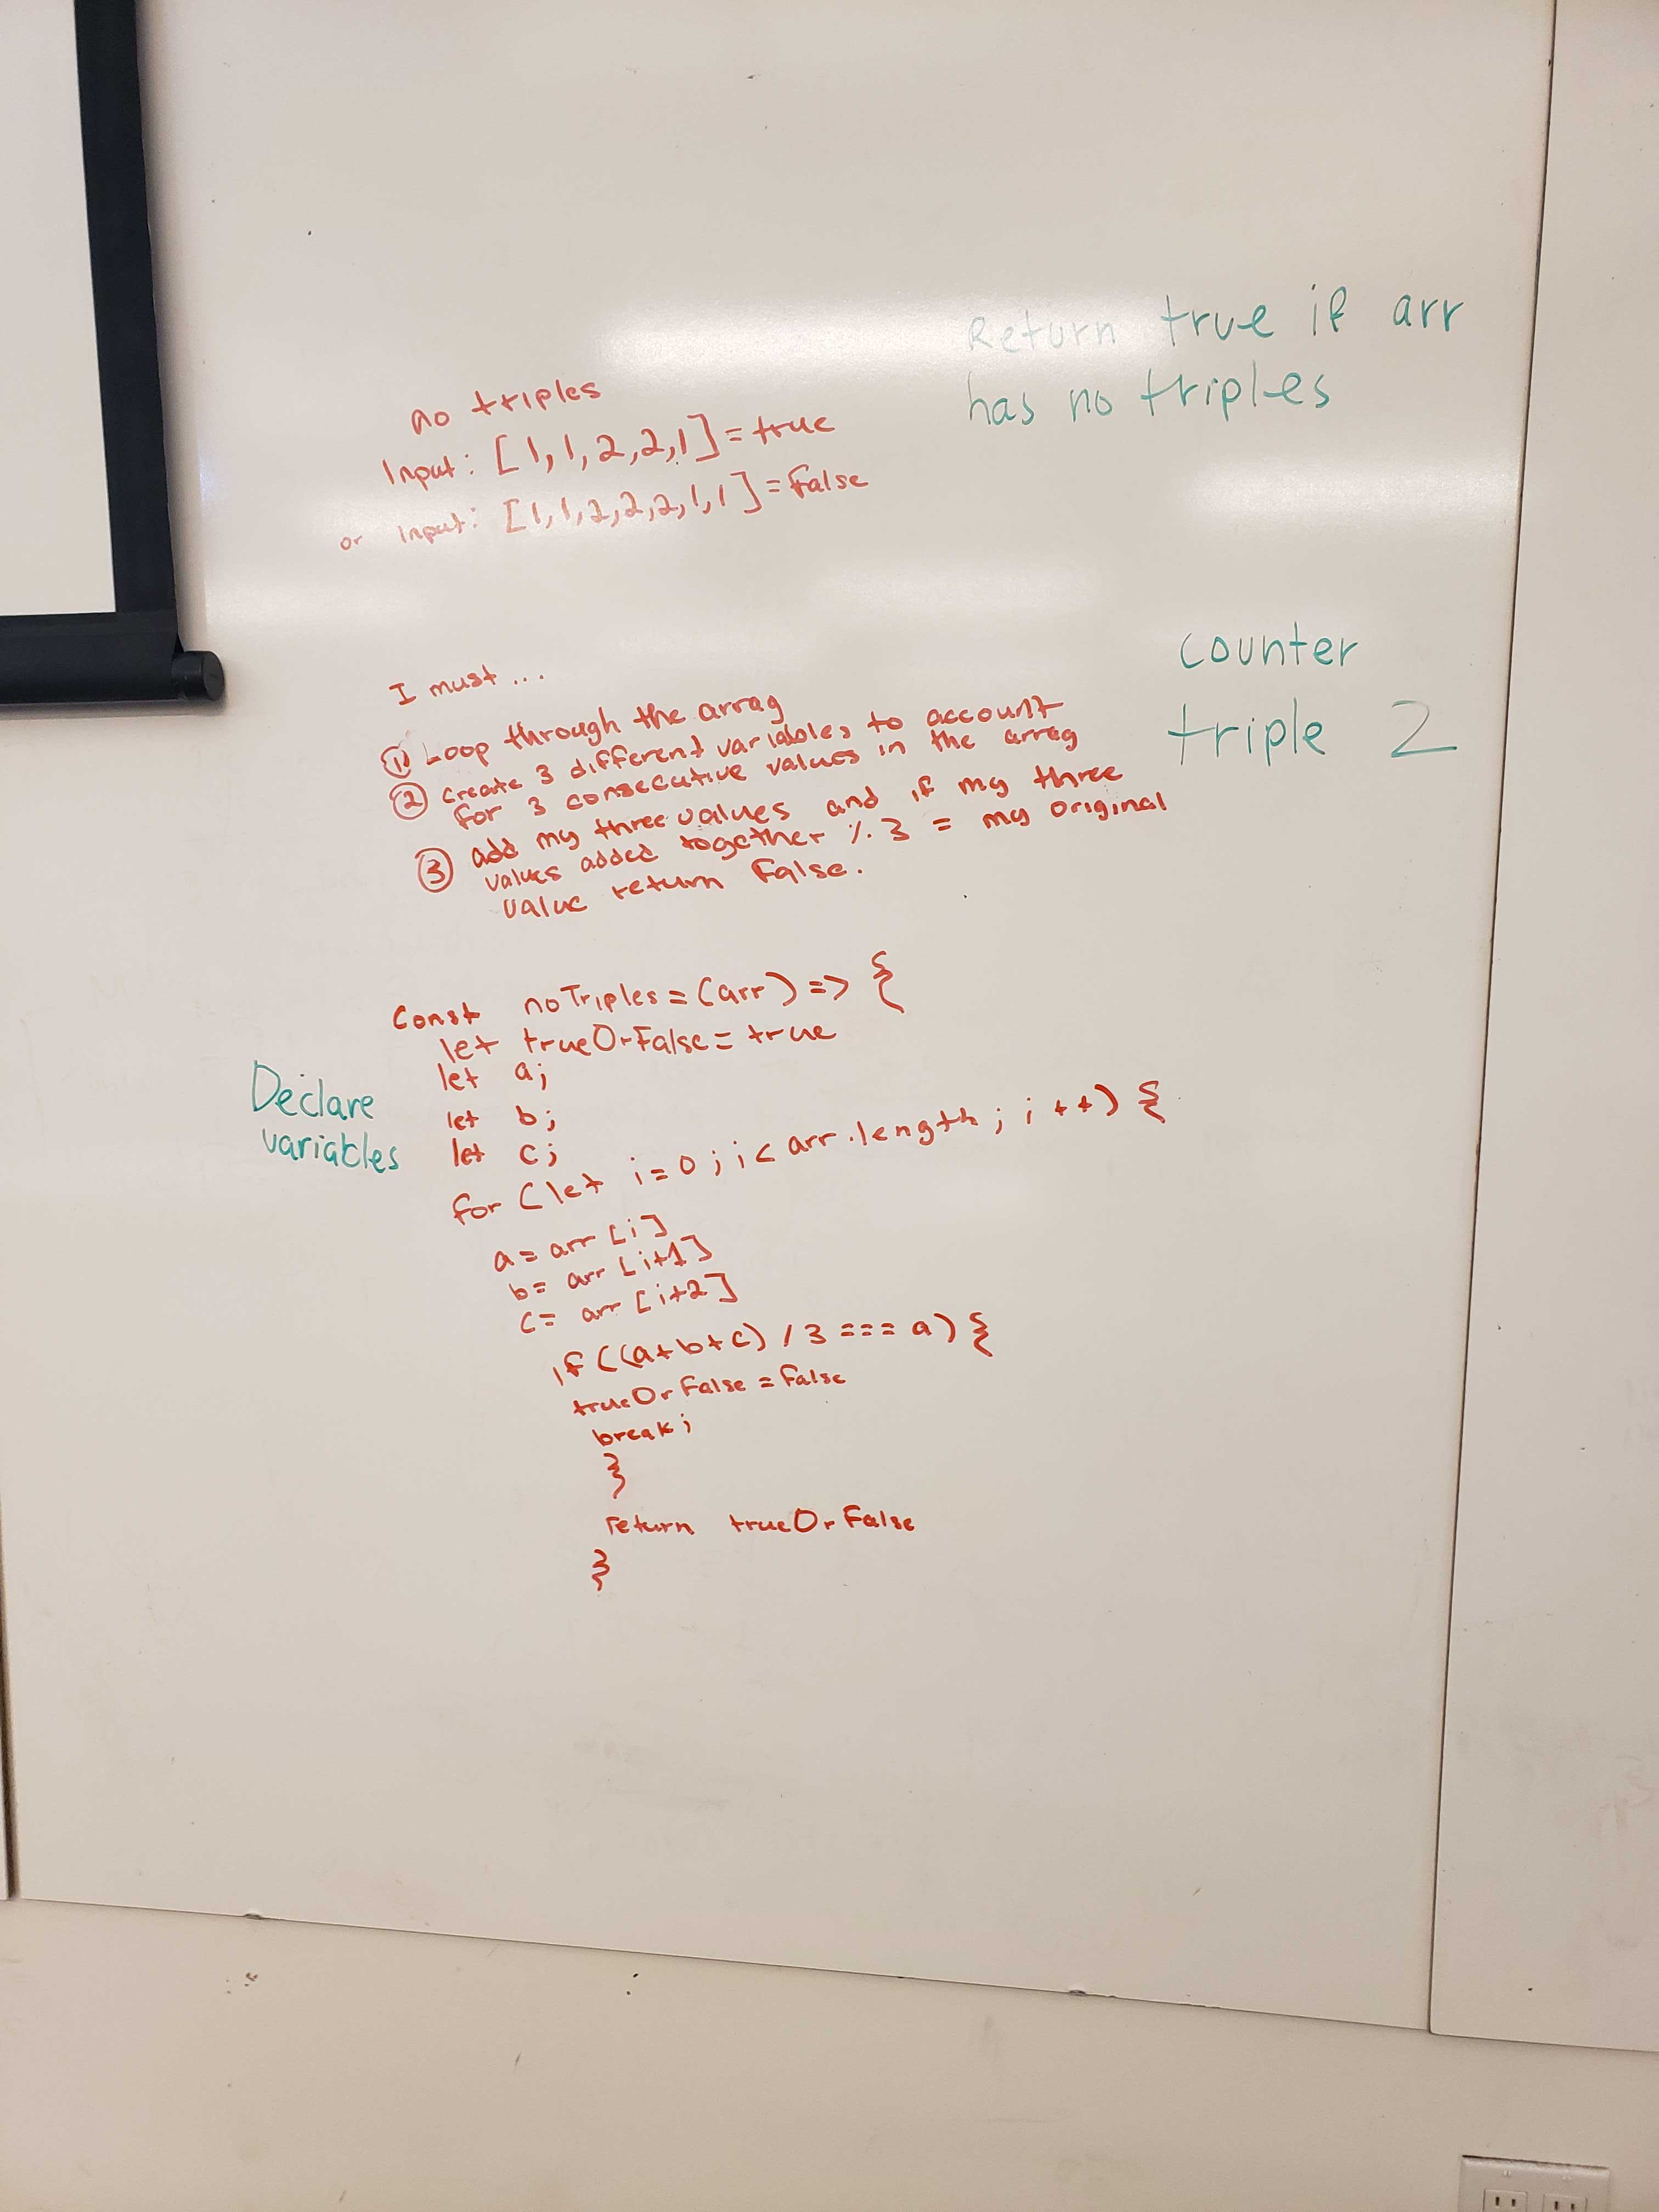 Return true if arr
has no triples
no triples
Input: [1,1,2,2,1]=true
or Input: [1,1,2,2,2,1,1]=False
counter
triple 2
I must ...
① Loop through the array
② create 3 different variables to account
for 3 consecutive values in the array
③ add my three values and if my three
values added together % 3 = my original
value return False.
Const noTriples = (arr) => {
let trueOrFalse = true
let a;
Declare
variables
let b;
let c;
for (let i=0; i< arr.length; i++) {
a= arr [i]
b= arr [i+1]
c= arr [i+2]
if ((a+b+c) / 3 === a) {
trueOrFalse = False
break;
}
return trueOrFalse
}